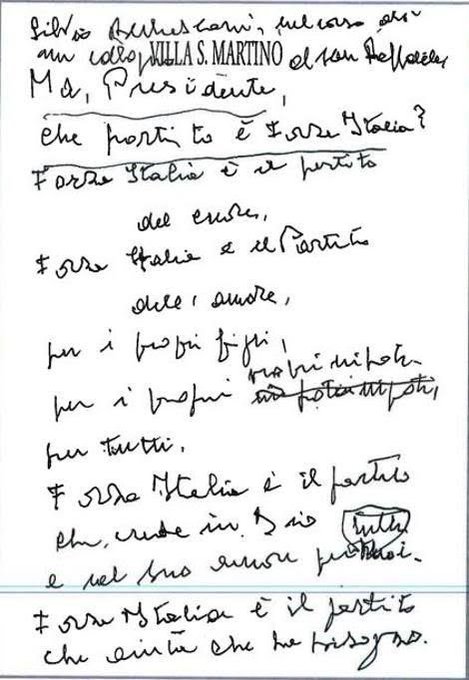 Silvio Berlusconi, nel corso di
un colloquio VILLA S. MARTINO al San Raffaele,
Ma, Presidente,
che partito è Forza Italia?
Forza Italia è il partito
del cuore,
Forza Italia è il Partito
dell'amore,
per i propri figli,
propri nipoti
per i propri
per tutti.
Forza Italia è il partito
che, crede in Dio
e nel suo amore per tutti noi.
Forza Italia è il partito
che aiuta che ha bisogno.